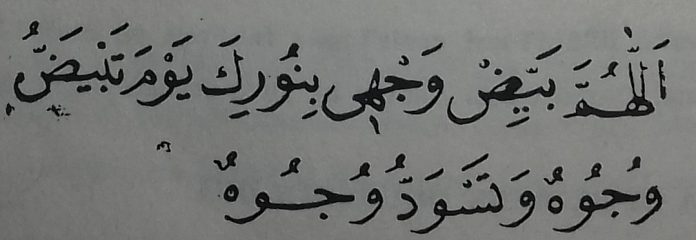 اَللّٰهُمَّ بَيِّضْ وَجْهِى بِنُورِكَ يَوْمَ تَبْيَضُّ
وُجُوْهٌ وَتَسْوَدُّ وُجُوهٌ